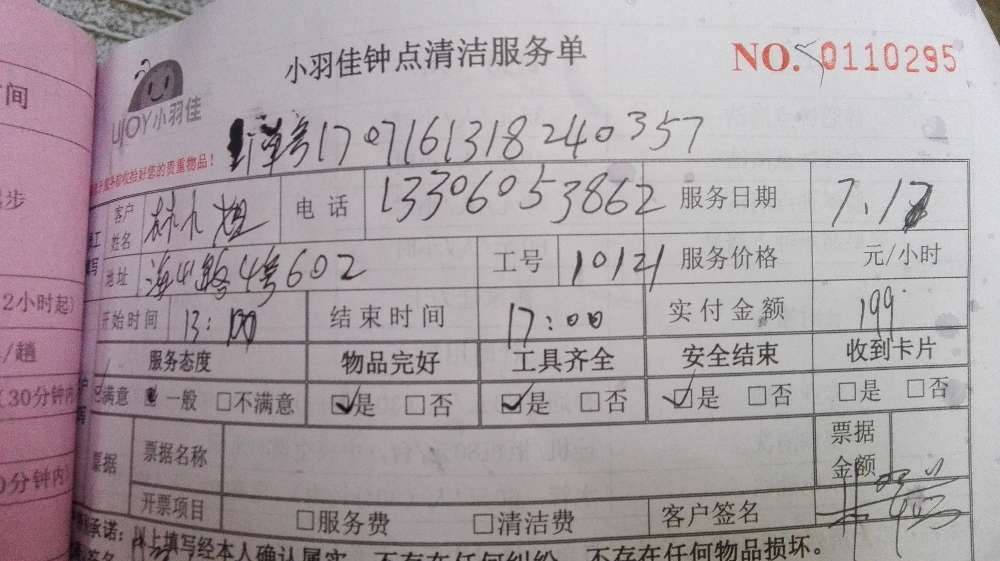 间
步
2小时起)
/趟
(30分钟内
0分钟内
UJOY小羽佳
小羽佳钟点清洁服务单
NO. 0110295
单号1707161318240357
收拾好您的贵重物品!
客户姓名 林小姐 电话 13306053862 服务日期 7.17
地址 海山路4号602 工号 10121 服务价格 元/小时
开始时间 13:00 结束时间 17:00 实付金额 199
服务态度 物品完好 工具齐全 安全结束 收到卡片
满意 一般 □不满意 ☑是 □否 ☑是 □否 ☑是 □否 □是 □否
票据 票据名称 票据金额
开票项目 □服务费 □清洁费 客户签名
承诺:以上填写经本人确认属实,不存在任何纠纷,不存在任何物品损坏。